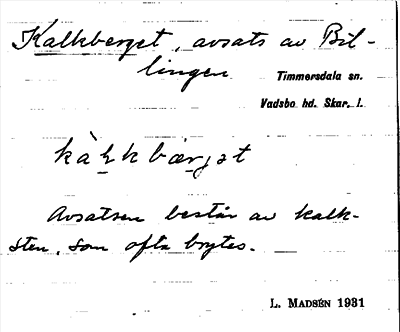 Kalkberget, avsats av Bil-
lingen
Timmersdala sn.
Vadsbo hd. Skar. l.
kàḷkbær̩jət
Avsatsen består av kalk-
sten, som ofta brytes.
L. MADSÉN 1931